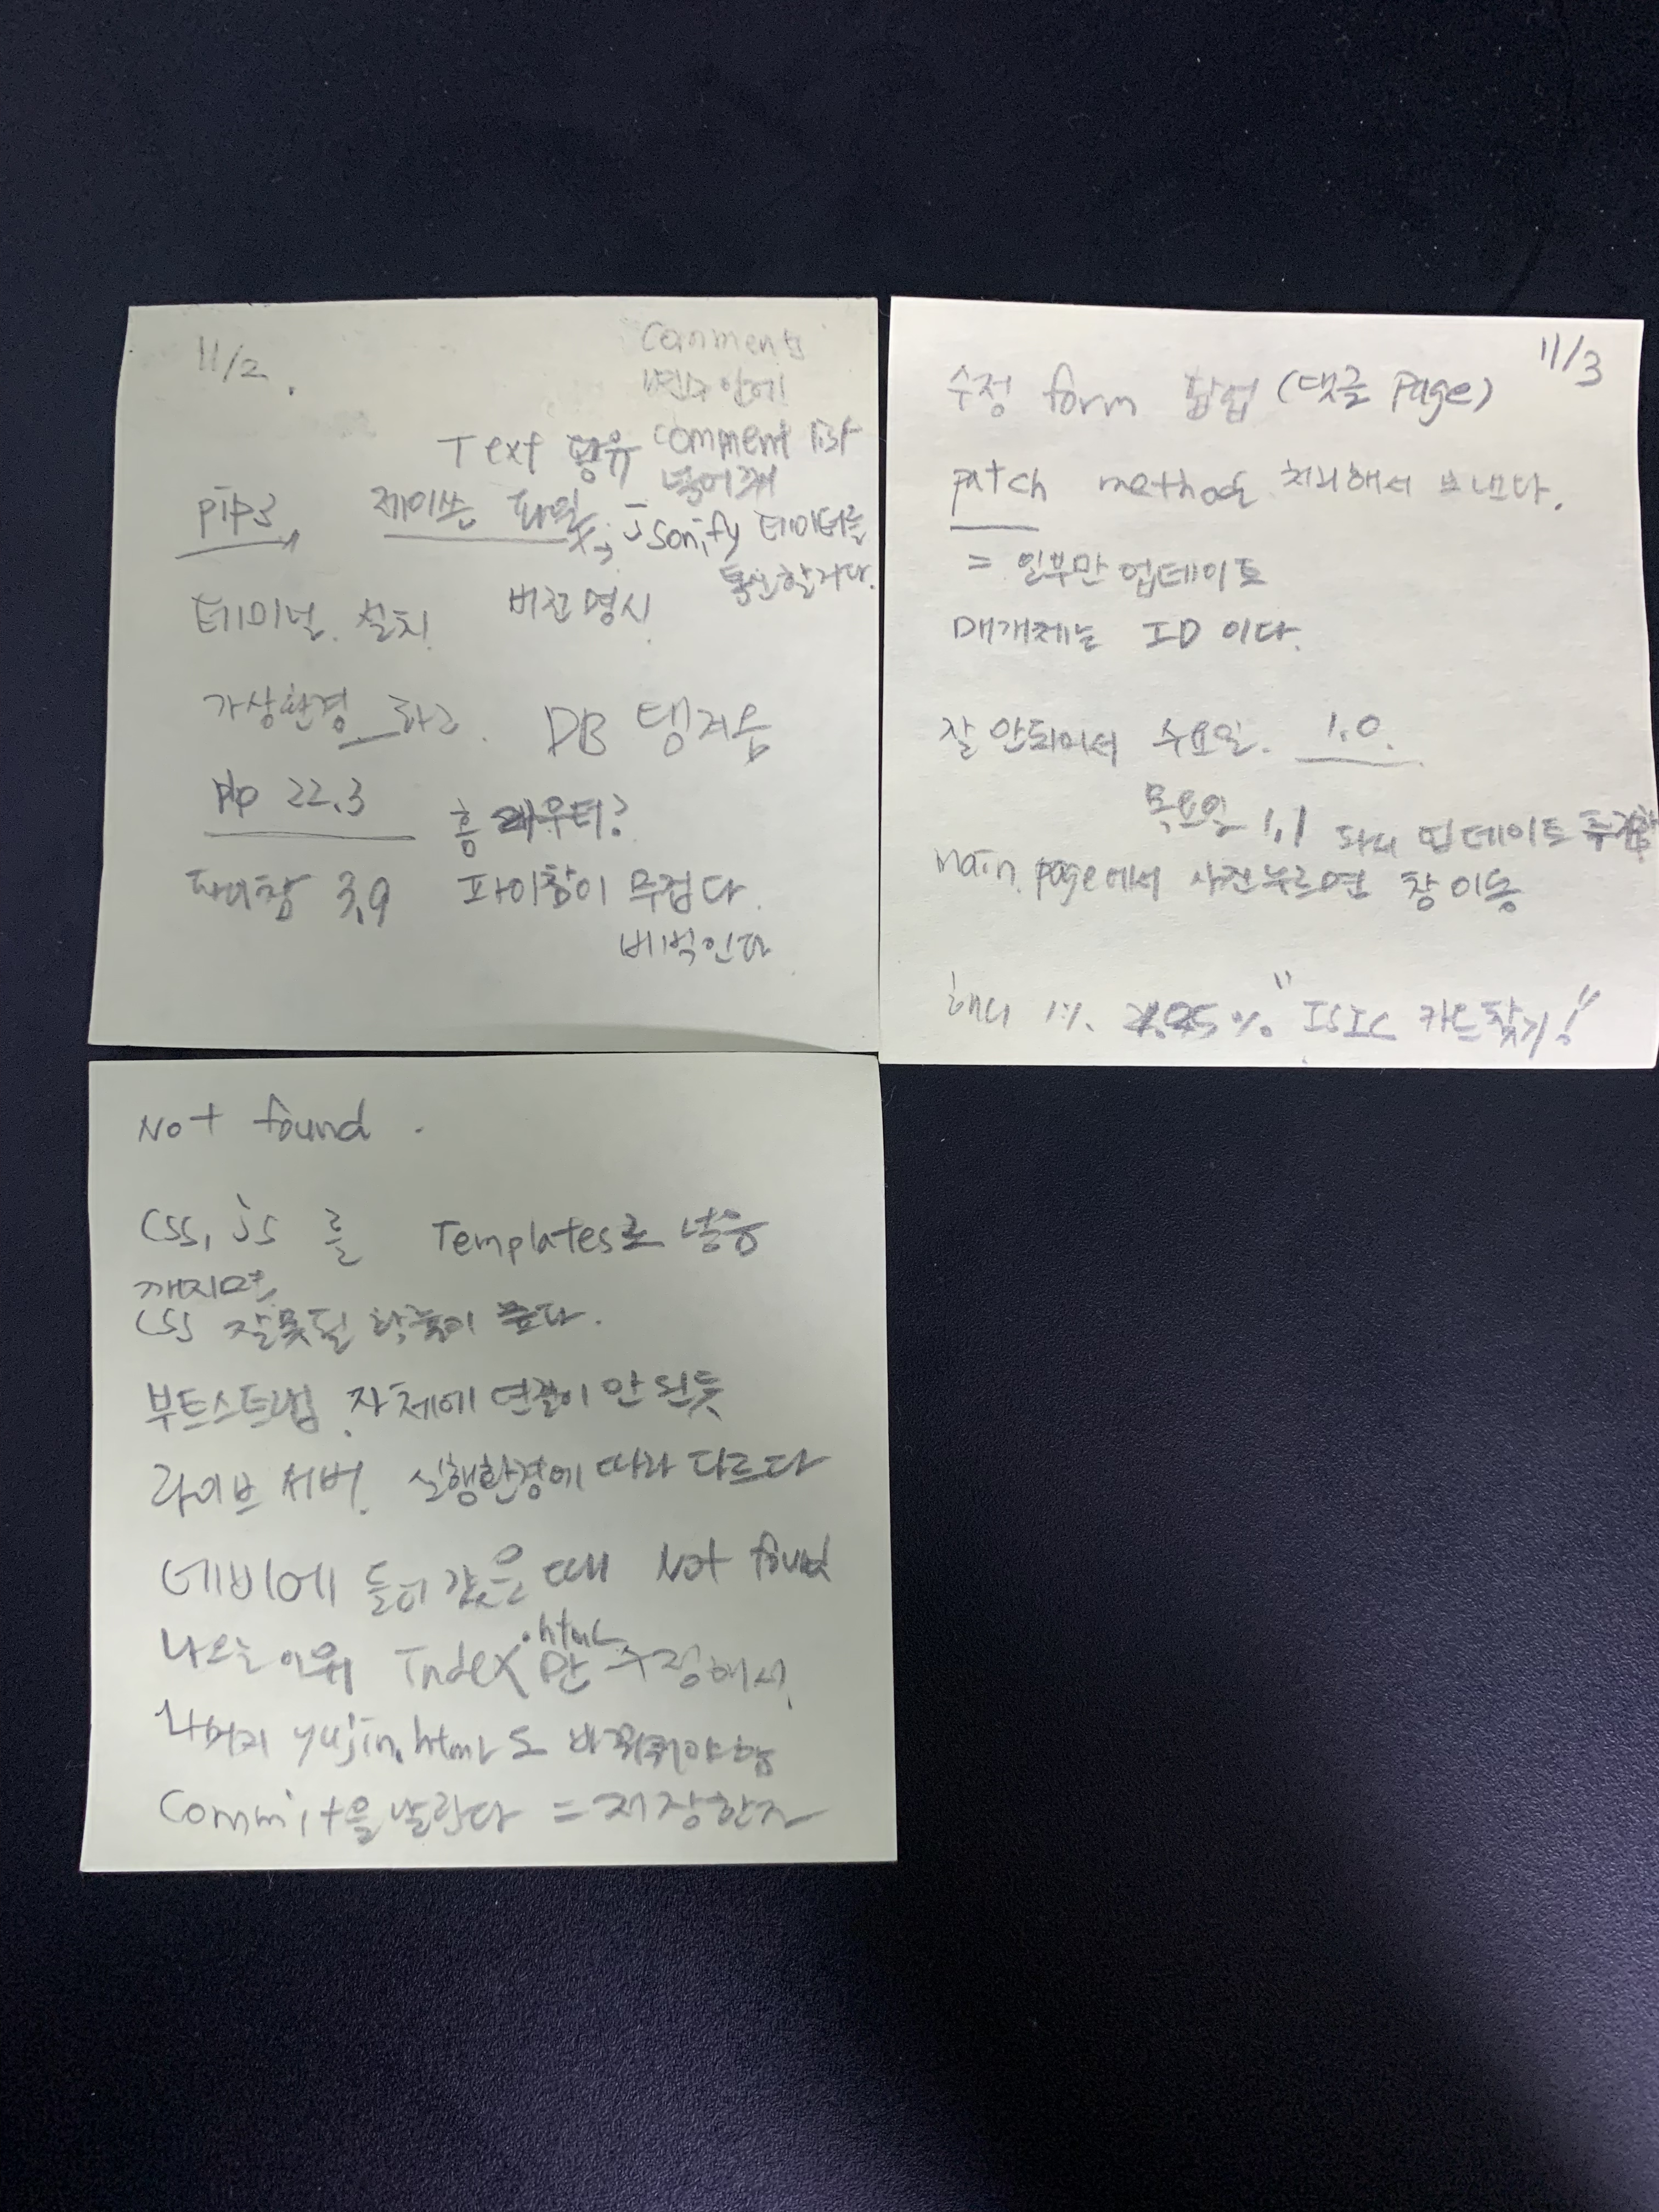 11/2.
Comments
변수 안에
Text 공유 comment list
넣어줘
pip3 제이쓴 파일 → jsonify 데이터를
통신할거다.
터미널 설치 버전명시
가상환경 하고. DB 땡겨옴
pip 22.3 홈 라우터?
파이참 3.9 파이참이 무겁다.
버벅인다
11/3
수정 form 팝업 (댓글 page)
patch method로 처리해서 보낸다.
= 일부만 업데이트
매개체는 ID 이다.
잘 안되어서 수요일. 1.0.
목요일 1.1 업데이트
main page에서 사진누르면 창 이동
해외 1% "ISIC 카드찾기!"
Not found.
CSS, JS 를 Templates로 넣음
깨지면
CSS 잘못될 확률이 높다.
부트스트랩 자체에 연결이 안 된듯
라이브 서버. 실행환경에 따라 다르다
네비에 들어갔을 때 Not found
나오는 이유 Index.html만 수정해서
나머지 yujin.html도 바꿔줘야함
Commit을 날린다 = 저장한다